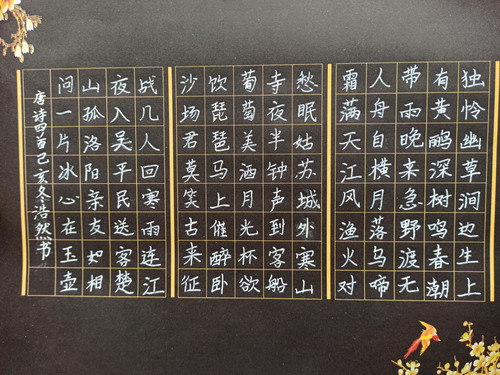 独怜幽草涧边生上
有黄鹂深树鸣春潮
带雨晚来急野渡无
人舟自横月落乌啼
霜满天江风渔火对
愁眠姑苏城外寒山
寺夜半钟声到客船
葡萄美酒月光杯欲
饮琵琶马上催醉卧
沙场君莫笑古来征
战几人回寒雨连江
夜入吴平民送客楚
山孤洛阳亲友如相
问一片冰心在玉壶
唐诗四首己亥冬浩然书